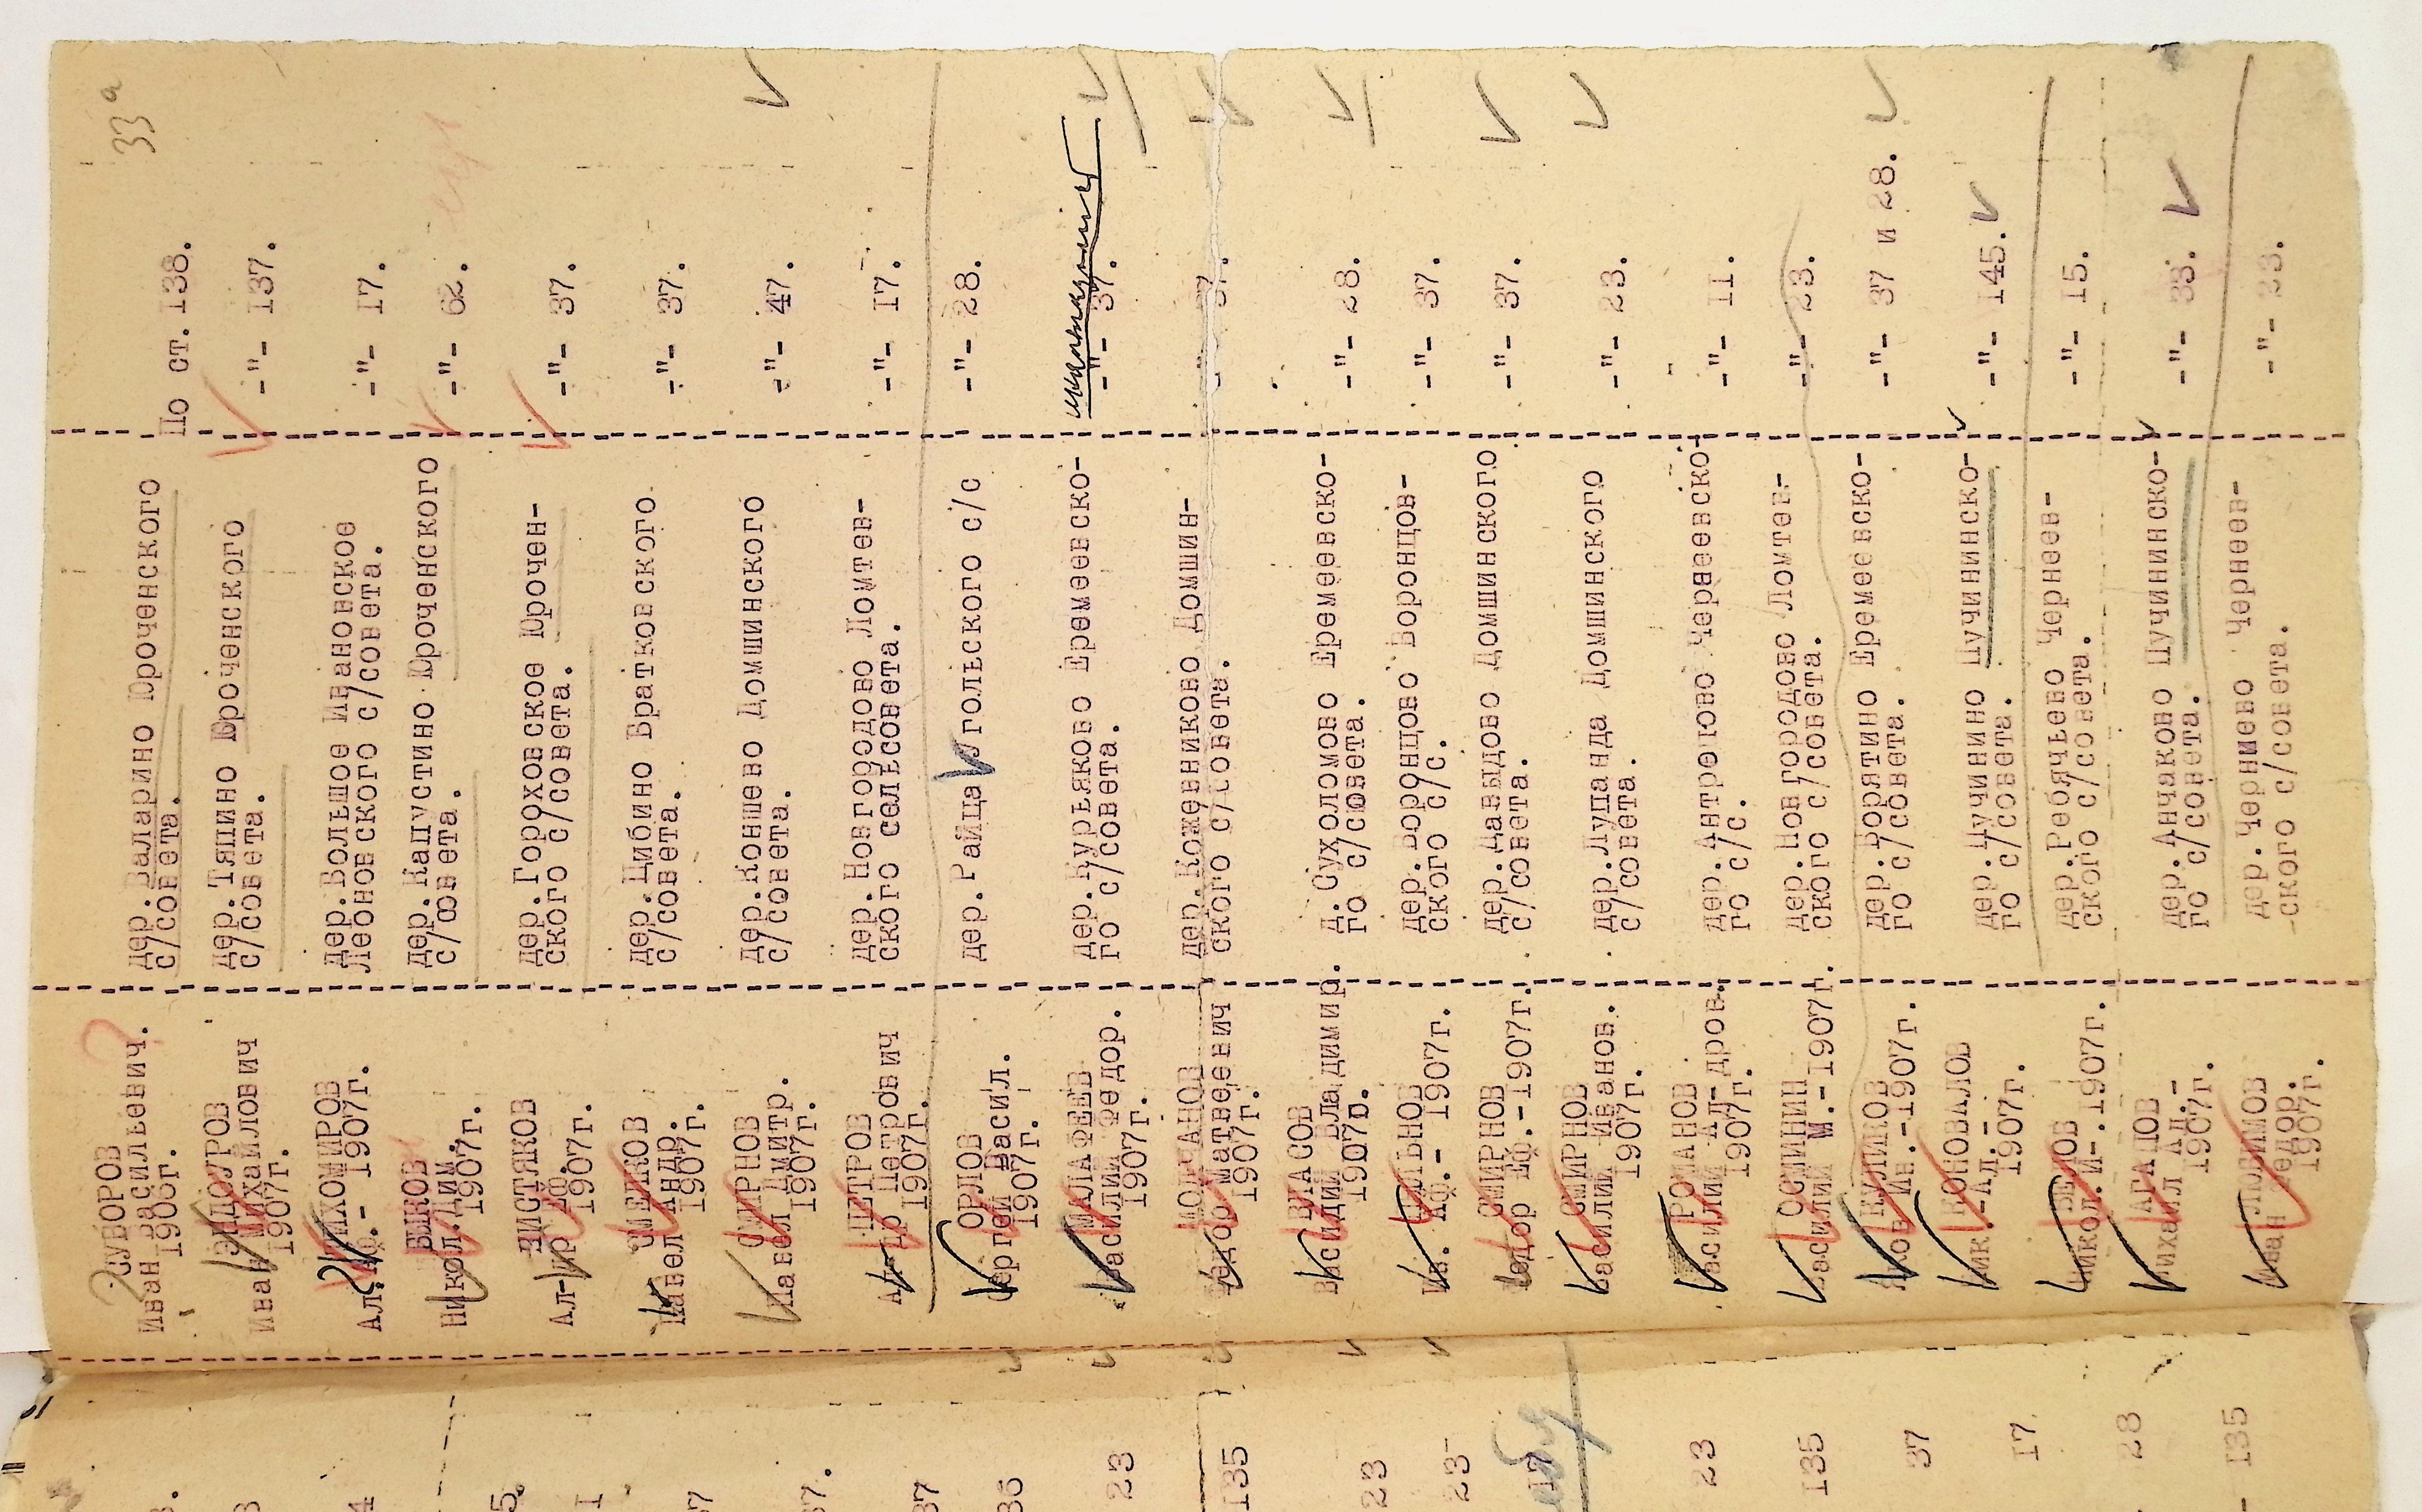 33а
СУВОРОВ
Иван Васильевич.
1906г.
дер. Валарино Юроченского
с/совета.
По ст. 138.
ЭНДОУРОВ
Иван Михайлович
1907г.
дер. Тяпино Юроченского
с/совета.
-"- 137.
ТИХОМИРОВ
Ал. Аф.- 1907г.
дер. Большое Ивановское
Леоновского с/совета.
-"- 17.
БЫКОВ
Никол. Дим.
1907г.
дер. Капустино Юроченского
с/совета.
-"- 62.
ЧИСТЯКОВ
1907г.
дер. Гороховское Юрочен-
ского с/совета.
-"- 37.
СМЕЛКОВ
Павел Андр.
1907г.
дер. Цибино Братковского
с/совета.
-"- 37.
СМИРНОВ
Павел Дмитр.
1907г.
дер. Коншево Домшинского
с/совета.
-"- 47.
ПЕТРОВ
Ал-др Петрович
1907г.
дер. Новгородово Ломтев-
ского сельсовета.
-"- 17.
ОРЛОВ
Сергей Васил.
1907г.
дер. Райца Угольского с/с
-"- 28.
МАЛАФЕЕВ
Василий Федор.
1907г.
дер. Курьяково Еремеевско-
го с/совета.
-"- 37.
МОЛЧАНОВ
Федор Матвеевич
1907г.
дер. Кожевниково Домшин-
ского с/совета.
-"- 37.
ВЛАСОВ
Василий Владимир.
1907г.
д. Сухоломово Еремеевско-
го с/совета.
-"- 28.
Ив. Аф.- 1907г.
дер. Воронцово Воронцов-
ского с/с.
-"- 37.
СМИРНОВ
Федор Еф.-1907г.
дер. Давыдово Домшинского
с/совета.
-"- 37.
СМИРНОВ
Василий Иванов.
1907г.
дер. Лупанда Домшинского
с/совета.
-"- 23.
РОМАНОВ
Василий Ал-дров.
1907г.
дер. Антропово Чернеевско-
го с/с.
-"- 11.
ОСМИНИН
Василий М.-1907г.
дер. Новгородово Ломтев-
ского с/совета.
-"- 23.
КУЛИКОВ
Яков Ин.-1907г.
дер. Борятино Еремеевско-
го с/совета.
-"- 37 и 28.
КОНОВАЛОВ
Ник.-Ал.-
1907г.
дер. Лучинино Лучининско-
го с/совета.
-"- 145.
БЕЛОВ
Никол. И-.1907г.
дер. Ребячьево Чернеев-
ского с/совета.
-"- 15.
АГАПОВ
Михаил Ал.-
1907г.
дер. Анчаково Лучининско-
го с/совета.
-"- 33.
ЛОВИМОВ
Иван Федор.
1907г.
дер. Черниево Чернеев-
ского с/совета.
-"- 23.
23
135
23
23-
17
23
135
37
17
23
135